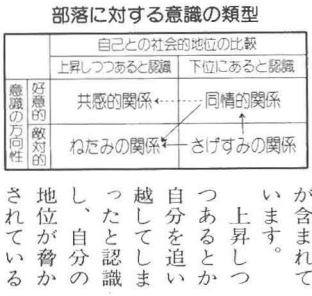 部落に対する意識の類型
自己との社会的地位の比較
上昇しつつあると認識 下位にあると認識
意識の方向性
好意的 共感的関係 同情的関係
敵対的 ねたみの関係 さげすみの関係
が含まれて
います。
上昇しつ
つあるとか
自分を追い
越してしま
ったと認識
し、自分の
地位が脅か
されている